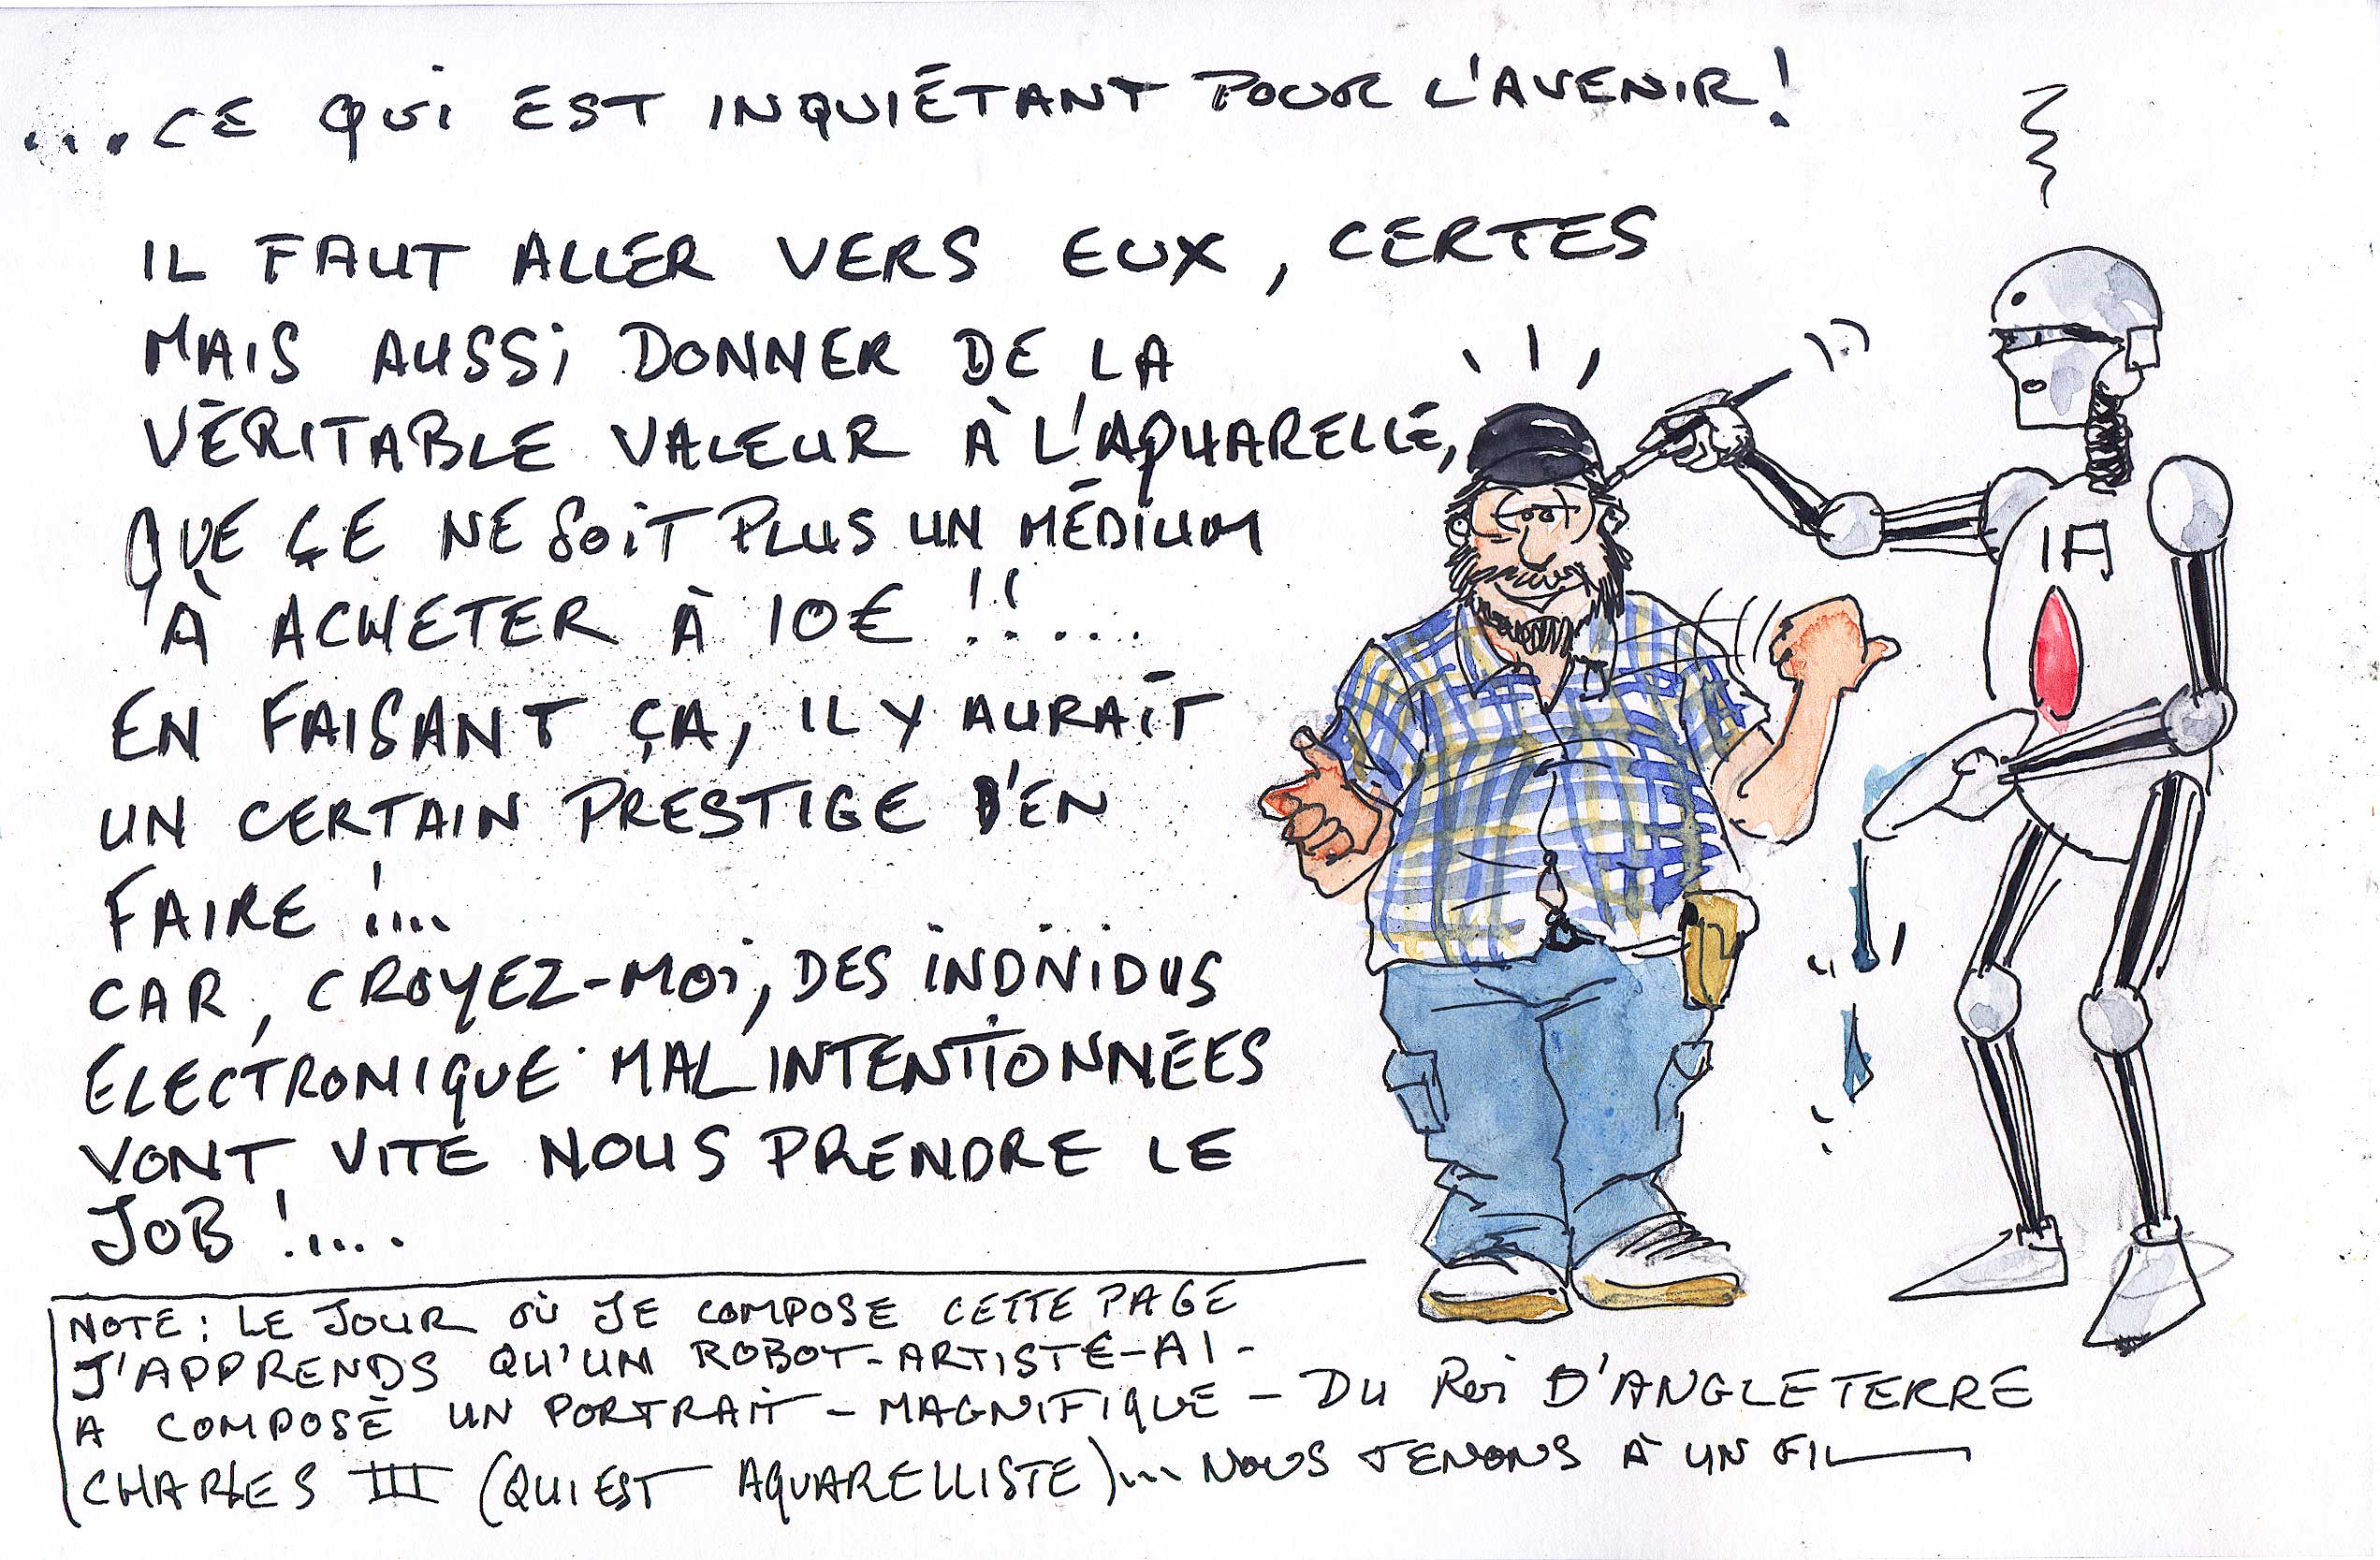 ...CE QUI EST INQUIÉTANT POUR L'AVENIR!
IL FAUT ALLER VERS EUX, CERTES
MAIS AUSSI DONNER DE LA
VÉRITABLE VALEUR À L'AQUARELLE,
QUE ÇE NE SOIT PLUS UN MÉDIUM
À ACHETER À 10€ !!...
EN FAISANT ÇA, IL Y AURAIT
UN CERTAIN PRESTIGE D'EN
FAIRE !...
CAR, CROYEZ-MOI, DES INDIVIDUS
ELECTRONIQUE MAL INTENTIONNÉES
VONT VITE NOUS PRENDRE LE
JOB !....
IA
NOTE: LE JOUR OÙ JE COMPOSE CETTE PAGE
J'APPRENDS QU'UN ROBOT-ARTISTE-AI-
A COMPOSÉ UN PORTRAIT - MAGNIFIQUE - DU ROI D'ANGLETERRE
CHARLES III (QUI EST AQUARELLISTE)... NOUS TENONS À UN FIL